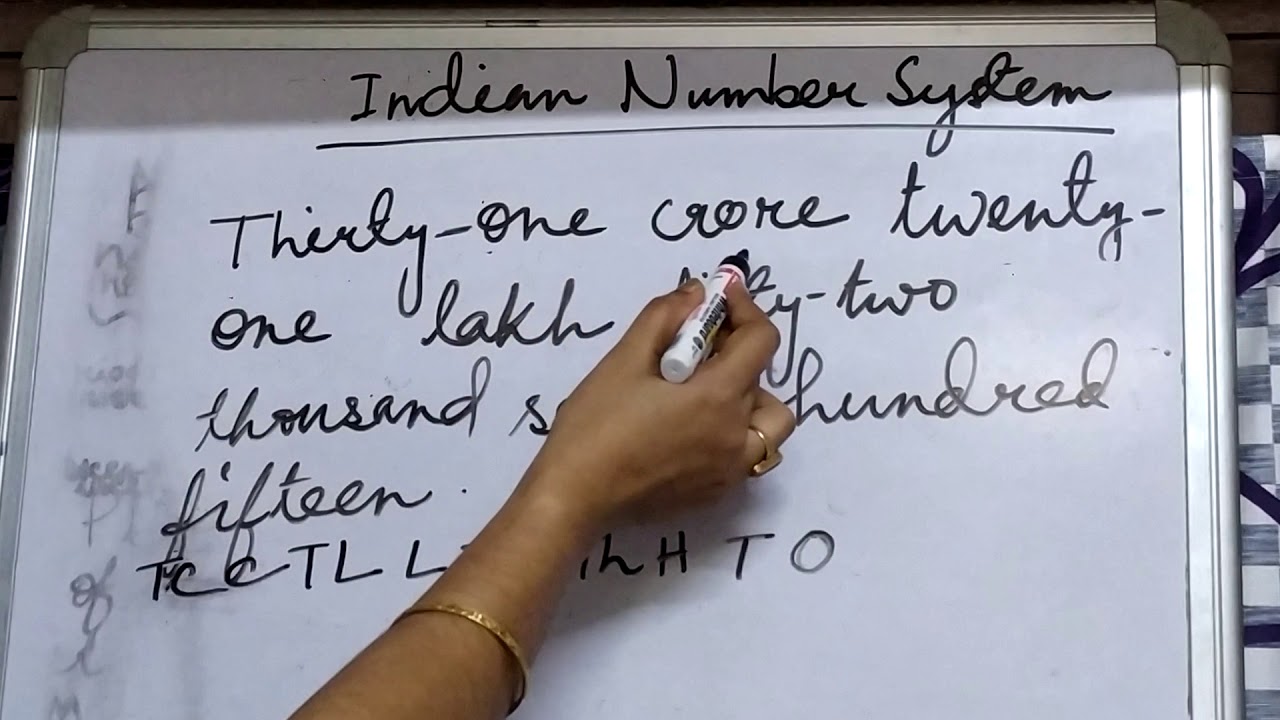 Indian Number System
Thirty-one crore twenty-
one lakh fifty-two
thousand hundred
fifteen.
TC C TL L H T O